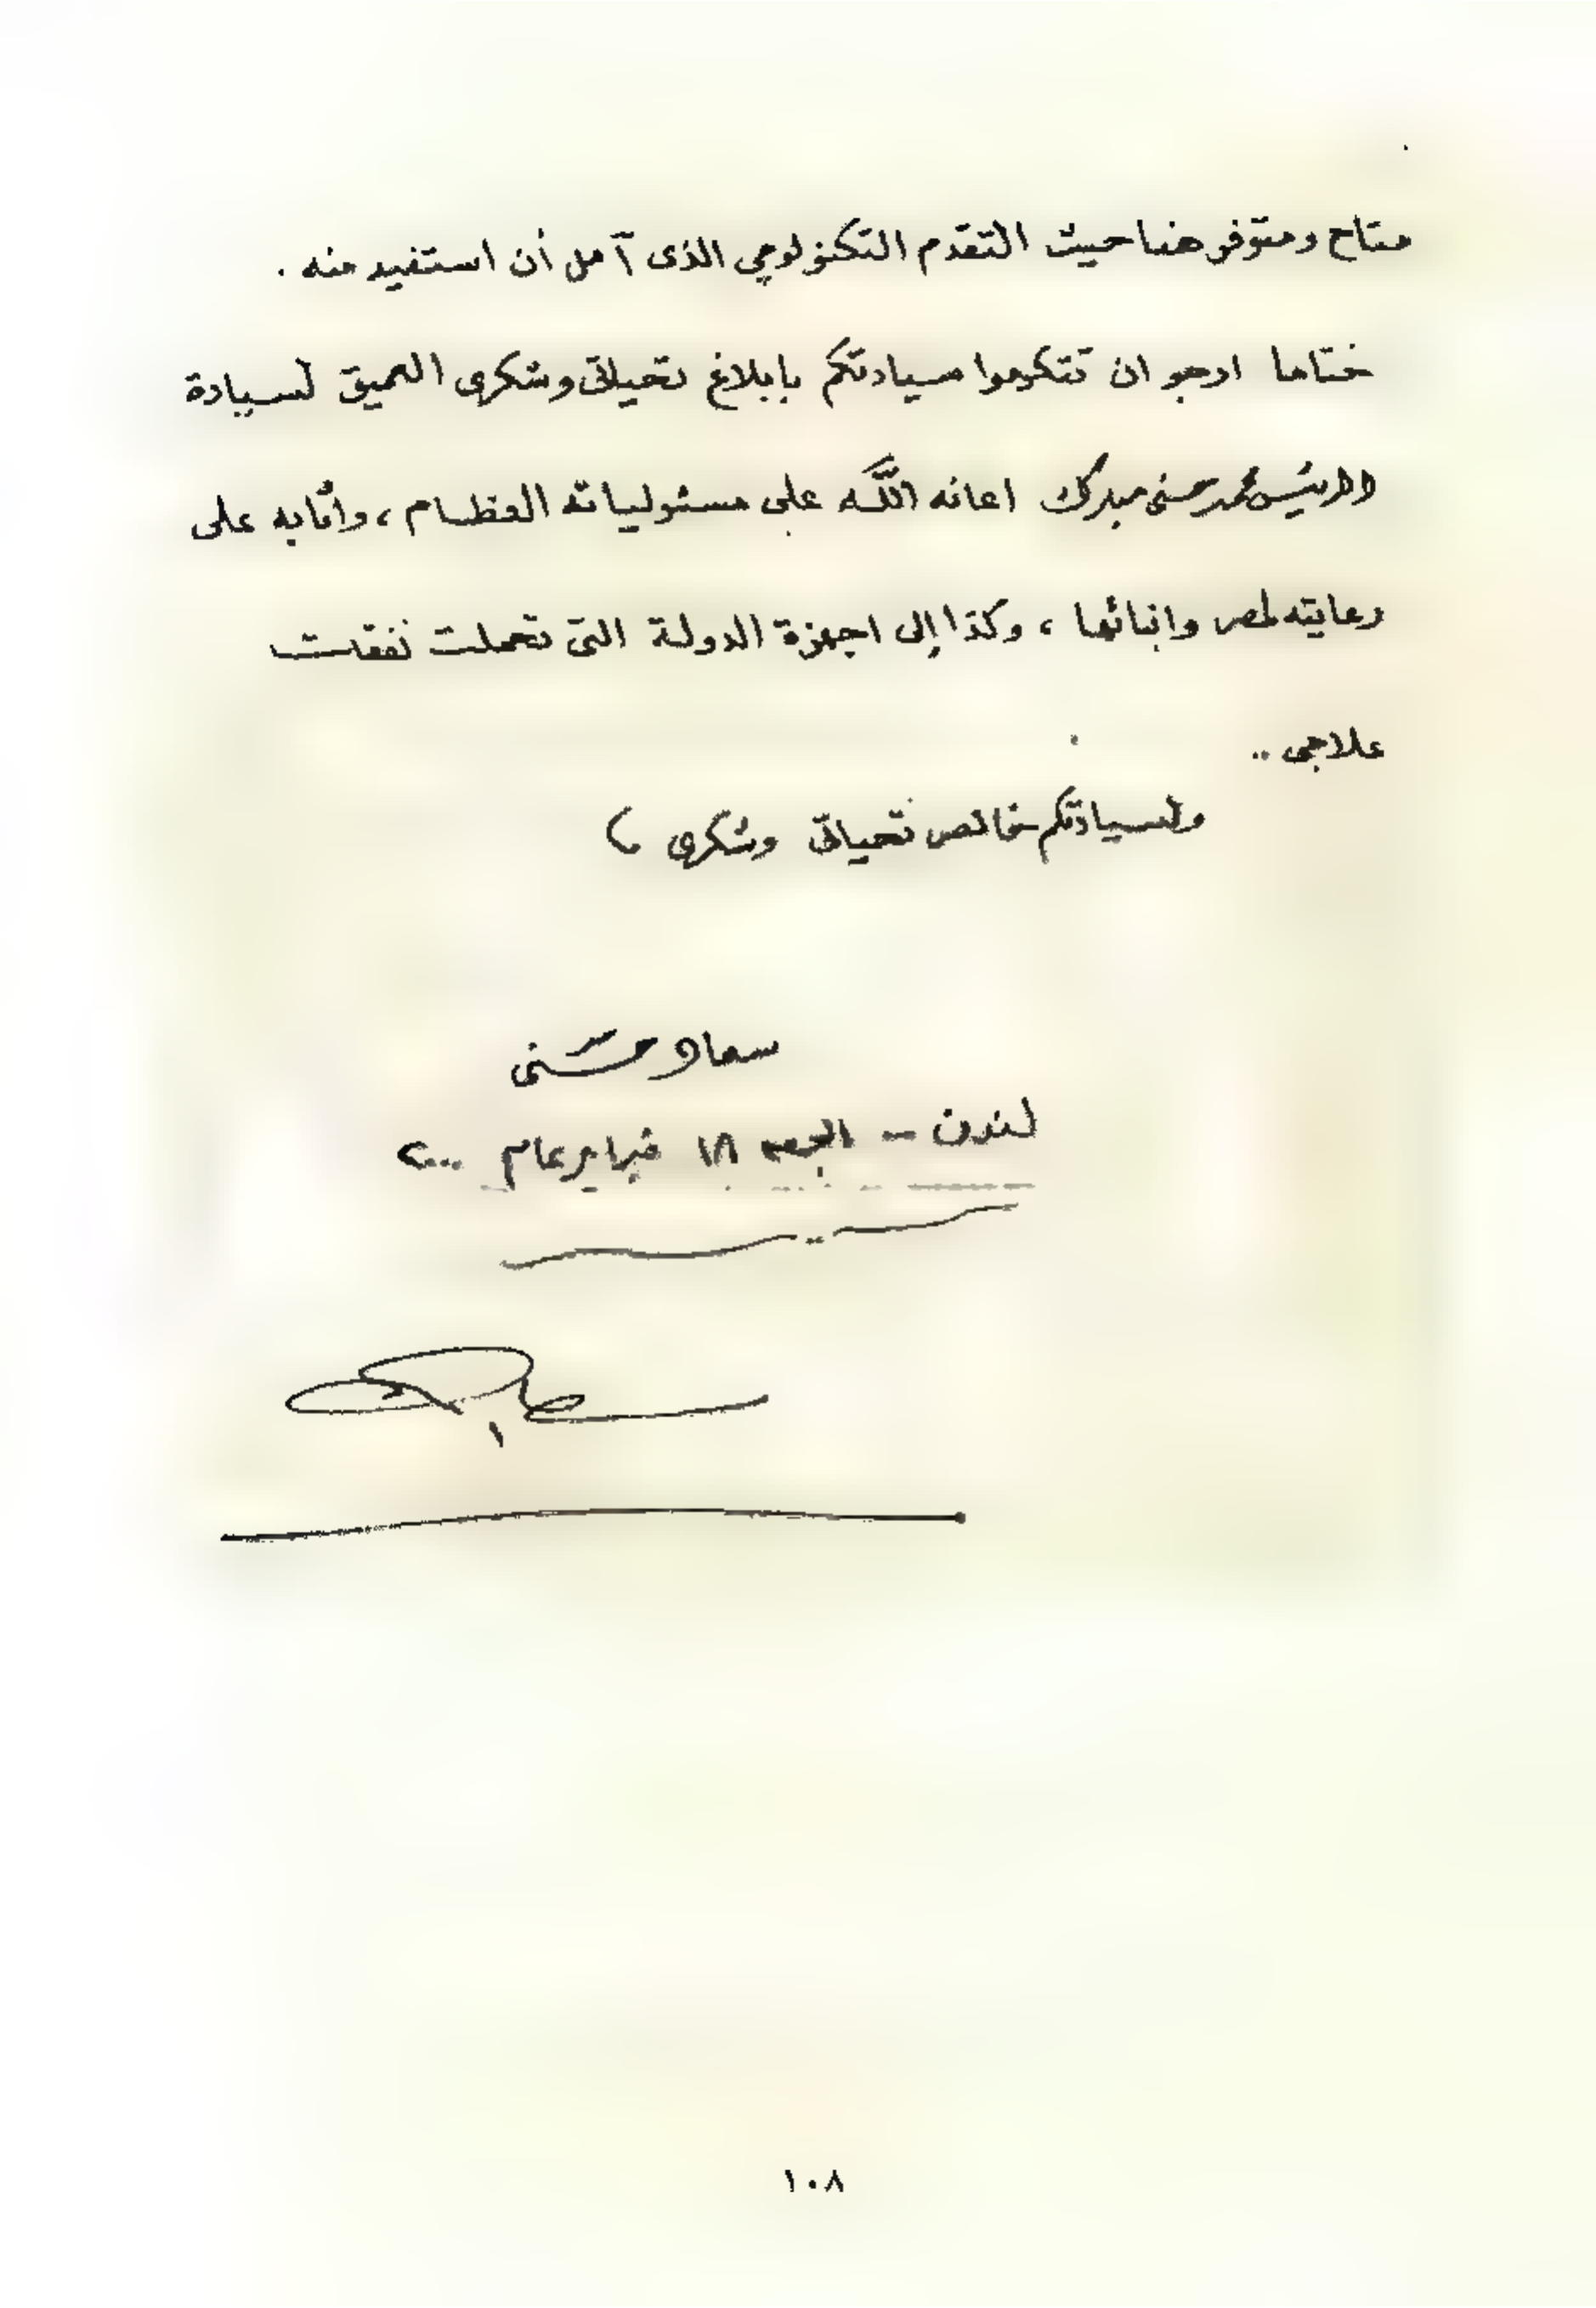 متاح ومتوفر هنا حيث التقدم التكنولوجي الذى آمل أن استفيد منه .
ختاما ارجو ان تتكرموا سيادتكم بابلاغ تحياتى وشكرى العميق لسيادة
الرئيس محمد حسنى مبارك اعانه الله على مسئولياته العظام ، وأثابه على
رعايته لمصر وابنائها ، وكذا إلى اجهزة الدولة التى تحملت نفقات
علاجى ..
ولسيادتكم خالص تحياتى وشكرى
سعاد حسنى
لندن - الجمعه ١٨ فبراير عام ٢٠٠٠
١٠٨